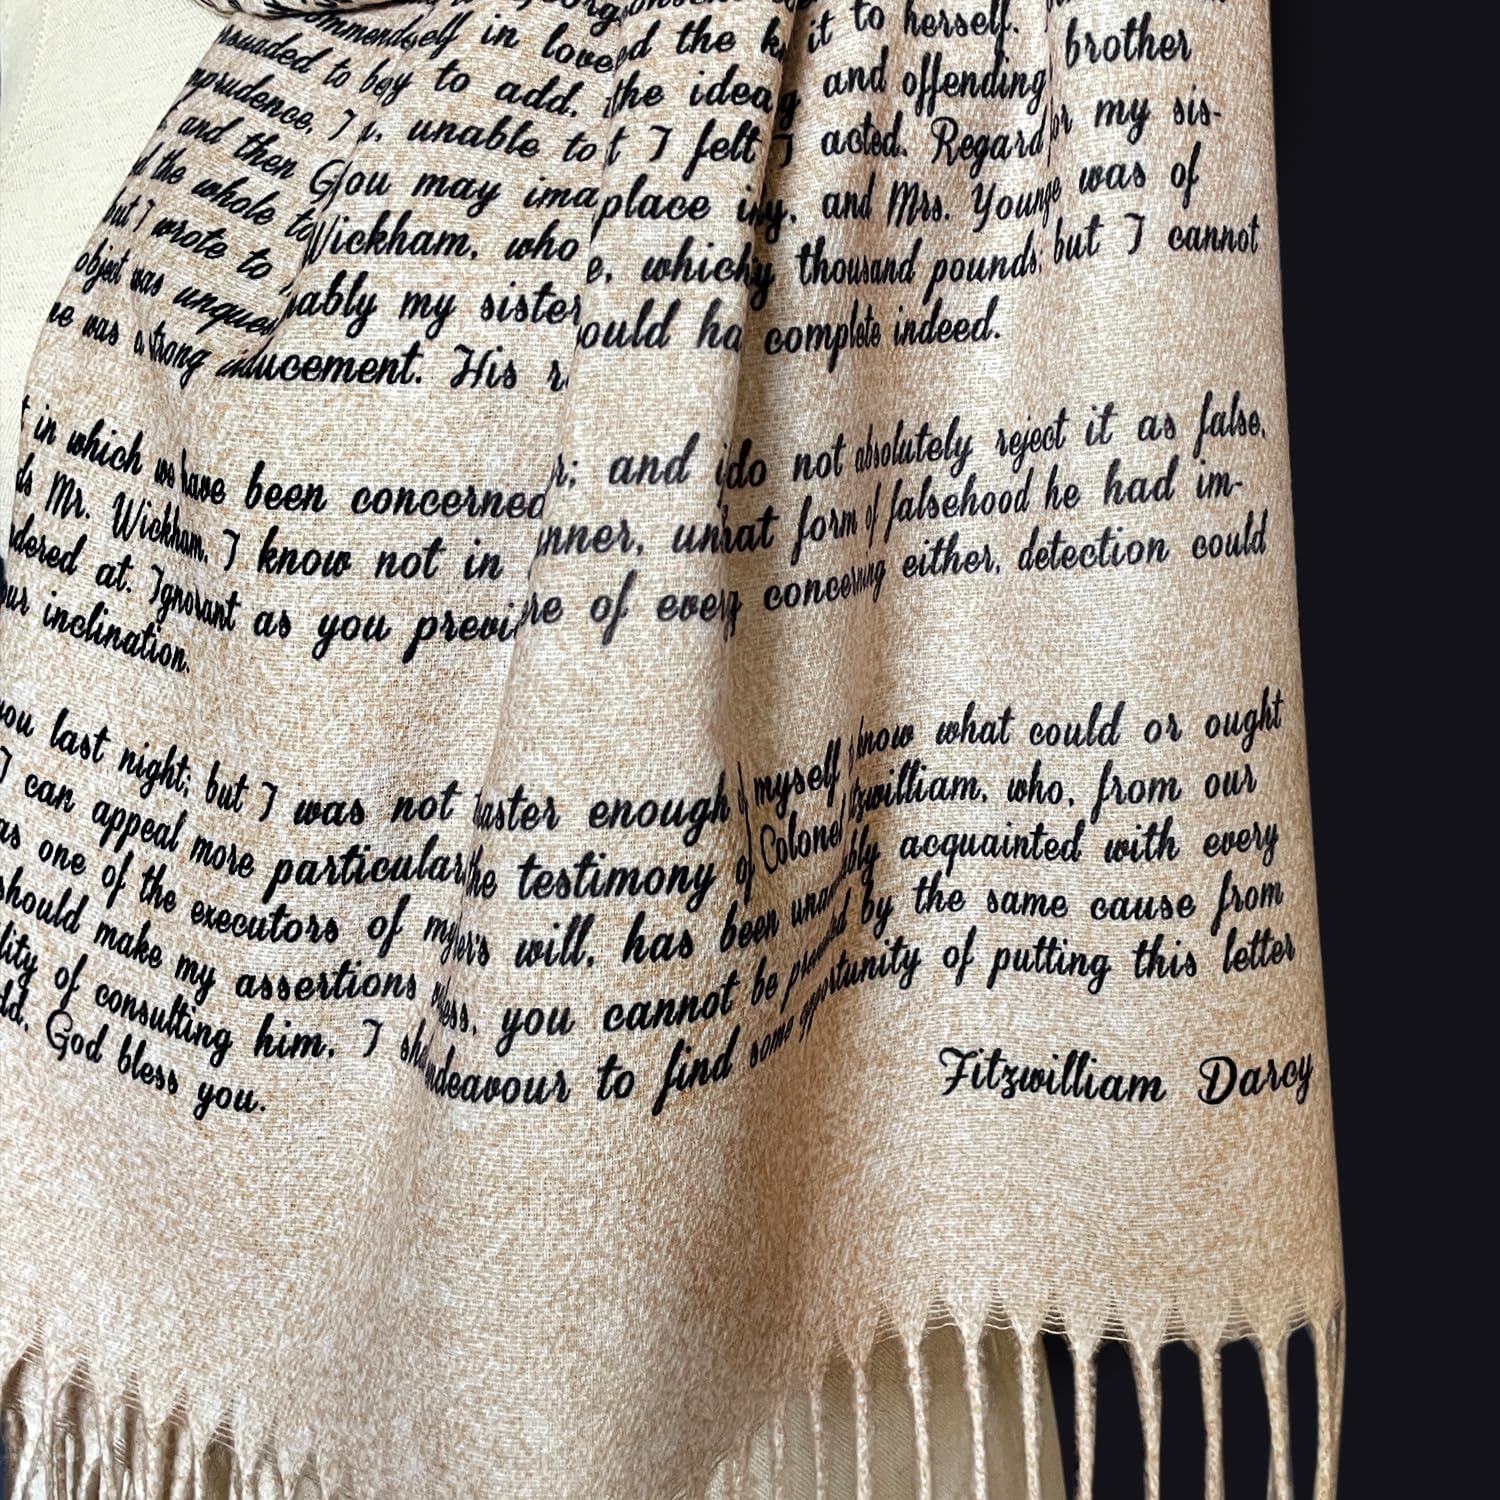 in love d the it to herself.
to add. the idea and offending brother
unable to t I felt I acted. Regard for my sis-
and then G you may ima place in y, and Mrs. Younge was of
d the whole to Wickham, who e, which y thousand pounds; but I cannot
but I wrote to ably my sister ould ha complete indeed.
object was unques
ne was a strong inducement. His r
t in which we have been concerned r; and i do not absolutely reject it as false,
ds Mr. Wickham. I know not in nner, un hat form of falsehood he had im-
dered at. Ignorant as you previ re of every g concerning either, detection could
our inclination.
you last night; but I was not aster enough myself know what could or ought
I can appeal more particular the testimony of Colonel Fitzwilliam, who, from our
as one of the executors of my er's will, has been una ably acquainted with every
should make my assertions less, you cannot be prevented by the same cause from
lity of consulting him, I sha ndeavour to find some opportunity of putting this letter
ld. God bless you.
Fitzwilliam Darcy